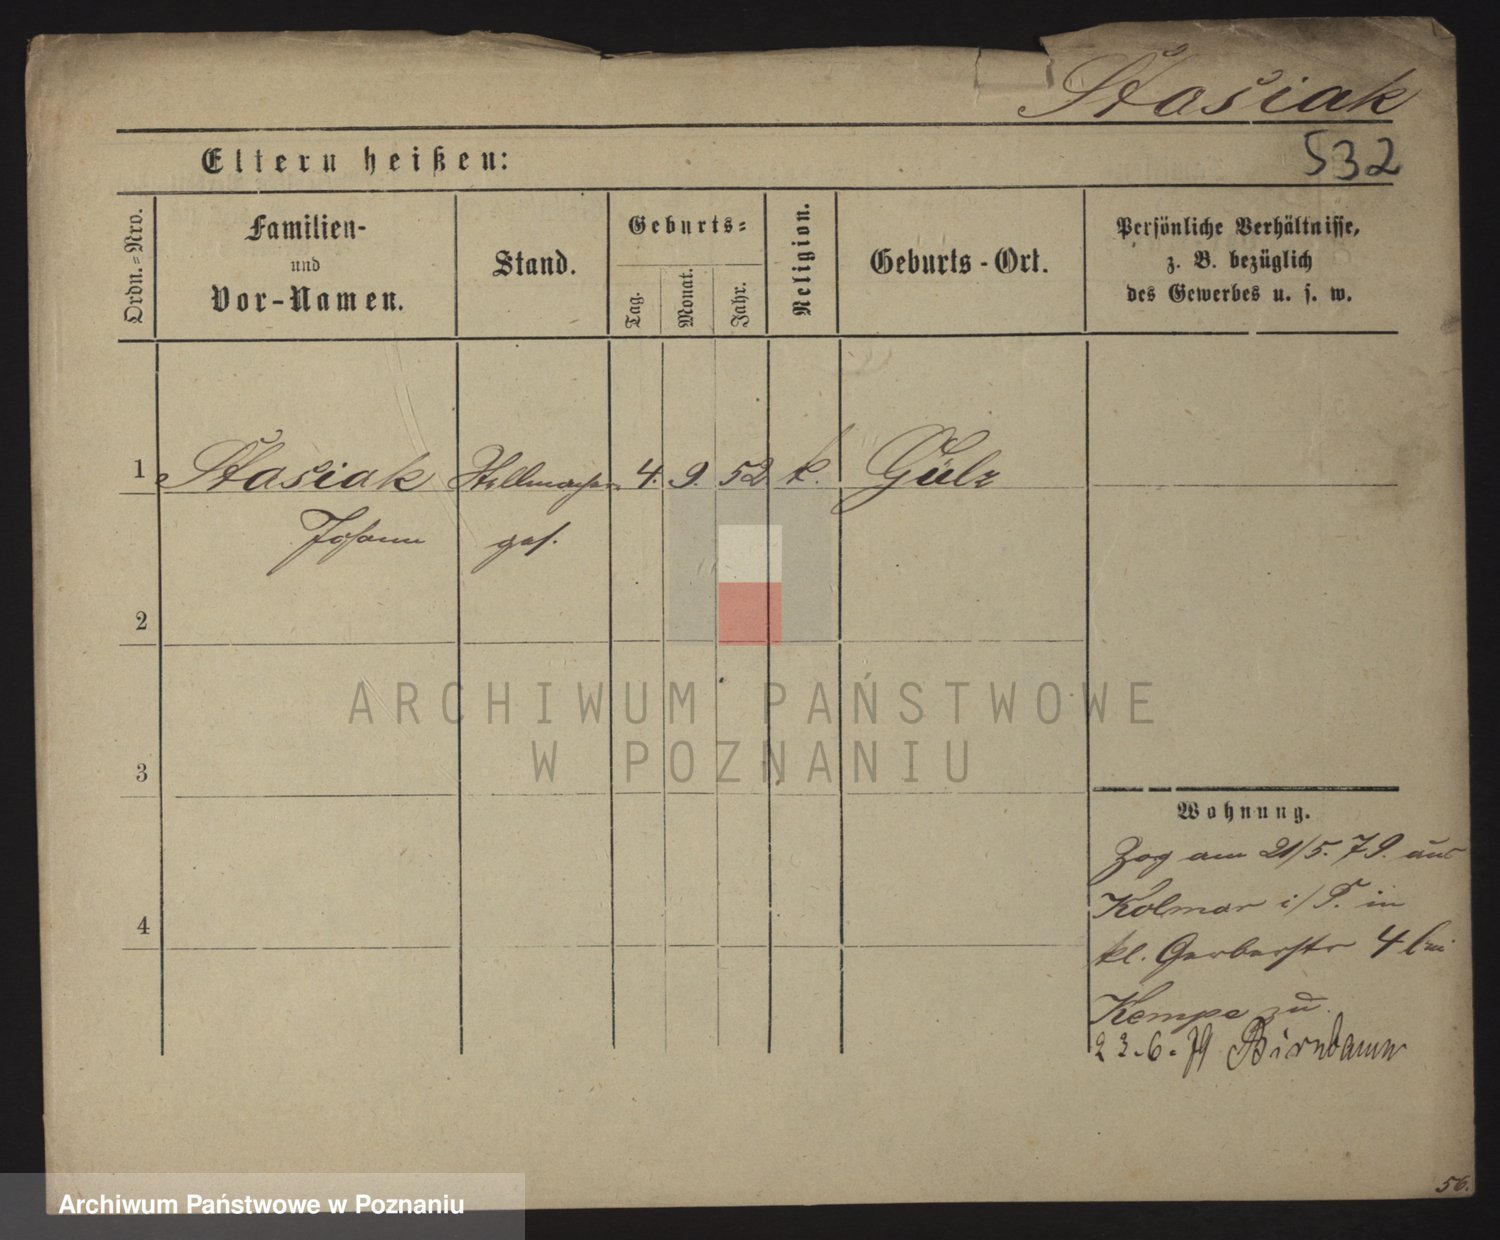 Stasiak
532
Eltern heißen:
Ordn.=Nro.
Familien-
und
Vor-Namen.
Stand.
Geburts=
Tag.
Monat.
Jahr.
Religion.
Geburts-Ort.
Persönliche Verhältnisse,
z. B. bezüglich
des Gewerbes u. s. w.
1 Stasiak Stellmacher 4. 9. 52 k. Gülz
Johann ges.
2
ARCHIWUM PAŃSTWOWE
W POZNANIU
3
Wohnung.
Zog am 21/5. 79. aus
Kolmar i/P. in
4
kl. Gerberstr 4 bei
Kempe zu.
23.6.79 Birnbaum
56.
Archiwum Państwowe w Poznaniu